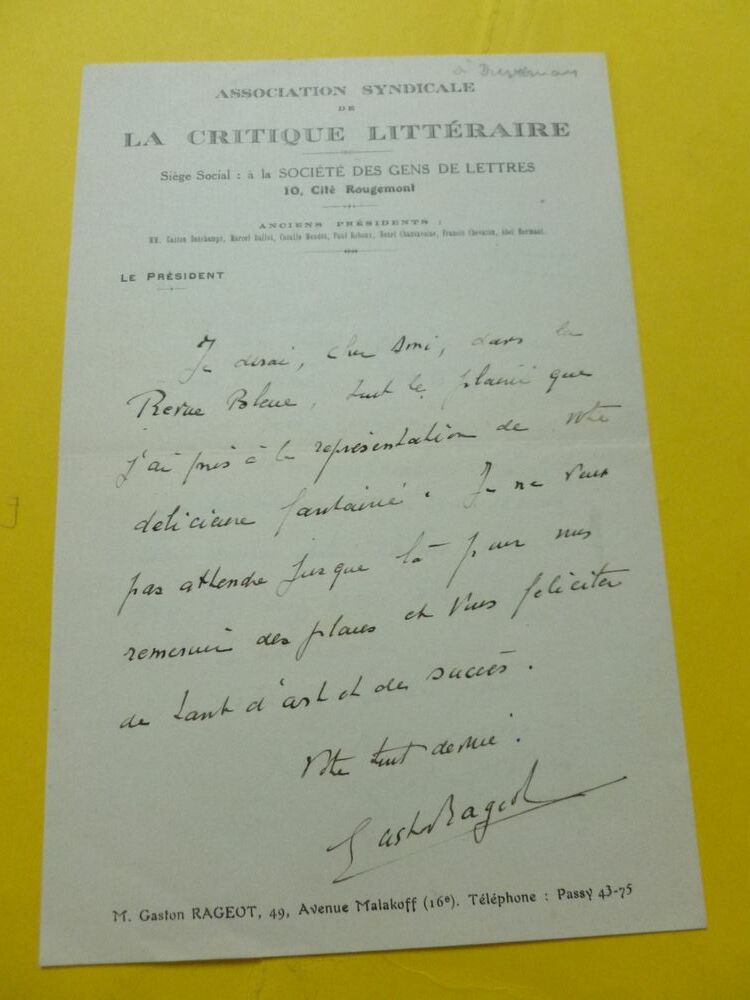 ASSOCIATION SYNDICALE
DE
LA CRITIQUE LITTÉRAIRE
Siège Social : à la SOCIÉTÉ DES GENS DE LETTRES
10, Cité Rougemont
ANCIENS PRÉSIDENTS :
MM. Gaston Deschamps, Marcel Ballot, Catulle Mendès, Paul Reboux, Henri Chantavoine, Francis Chevassu, Abel Hermant.
LE PRÉSIDENT
Je dirai, cher Ami, dans la
Revue Bleue, tout le plaisir que
j'ai pris à la représentation de votre
délicieuse fantaisie. Je ne veux
pas attendre jusque là pour vous
remercier des places et vous féliciter
de tant d'art et de succès.
Votre tout dévoué.
Gaston Rageot
M. Gaston RAGEOT, 49, Avenue Malakoff (16e). Téléphone : Passy 43-75